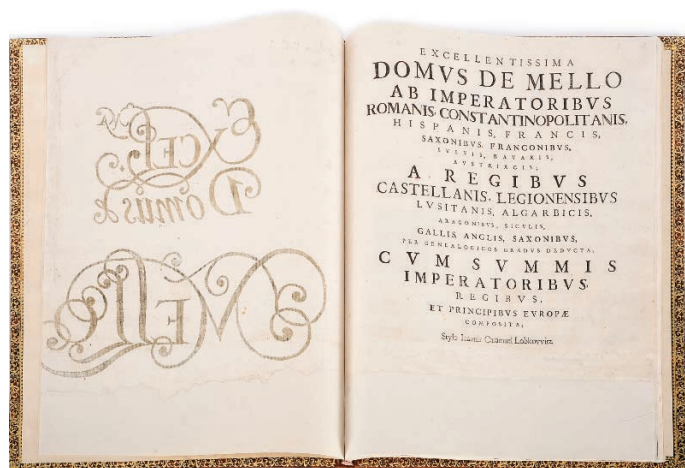 Excel.
Domus de
MELLO
EXCELLENTISSIMA
DOMVS DE MELLO
AB IMPERATORIBVS
ROMANIS, CONSTANTINOPOLITANIS,
HISPANIS, FRANCIS,
SAXONIBVS, FRANCONIBVS,
SVEVIS, BAVARIS,
AVSTRIACIS;
A REGIBVS
CASTELLANIS, LEGIONENSIBVS
LVSITANIS, ALGARBICIS,
ARAGONIBVS, SICVLIS,
GALLIS, ANGLIS, SAXONIBVS,
PER GENEALOGICOS GRADVS DEDVCTA,
CVM SVMMIS
IMPERATORIBVS,
REGIBVS,
ET PRINCIPIBVS EVROPÆ
COMPOSITA,
Stylo Ioannis Caramuel Lobkowitz.